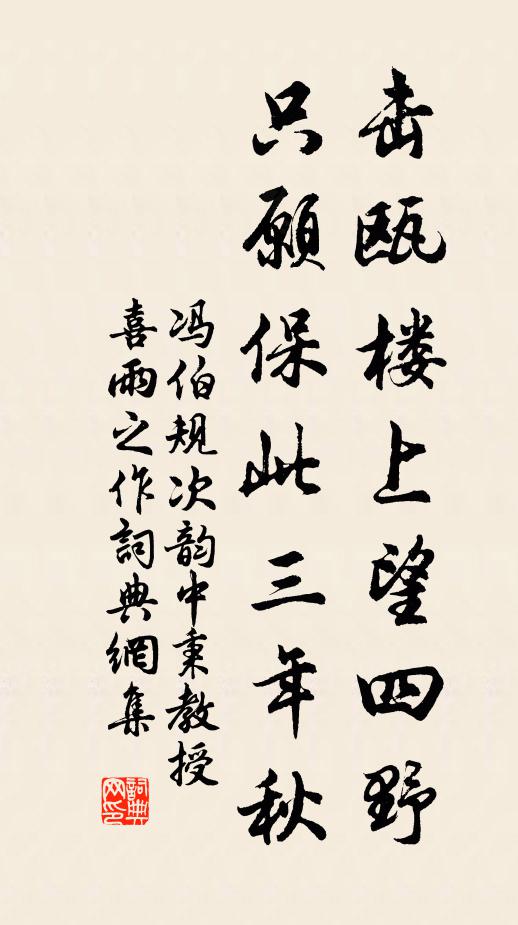 击瓯楼上望四野
只願保此三年秋
冯伯規次韵中秉教授
喜雨之作詞典網集
詞典网印